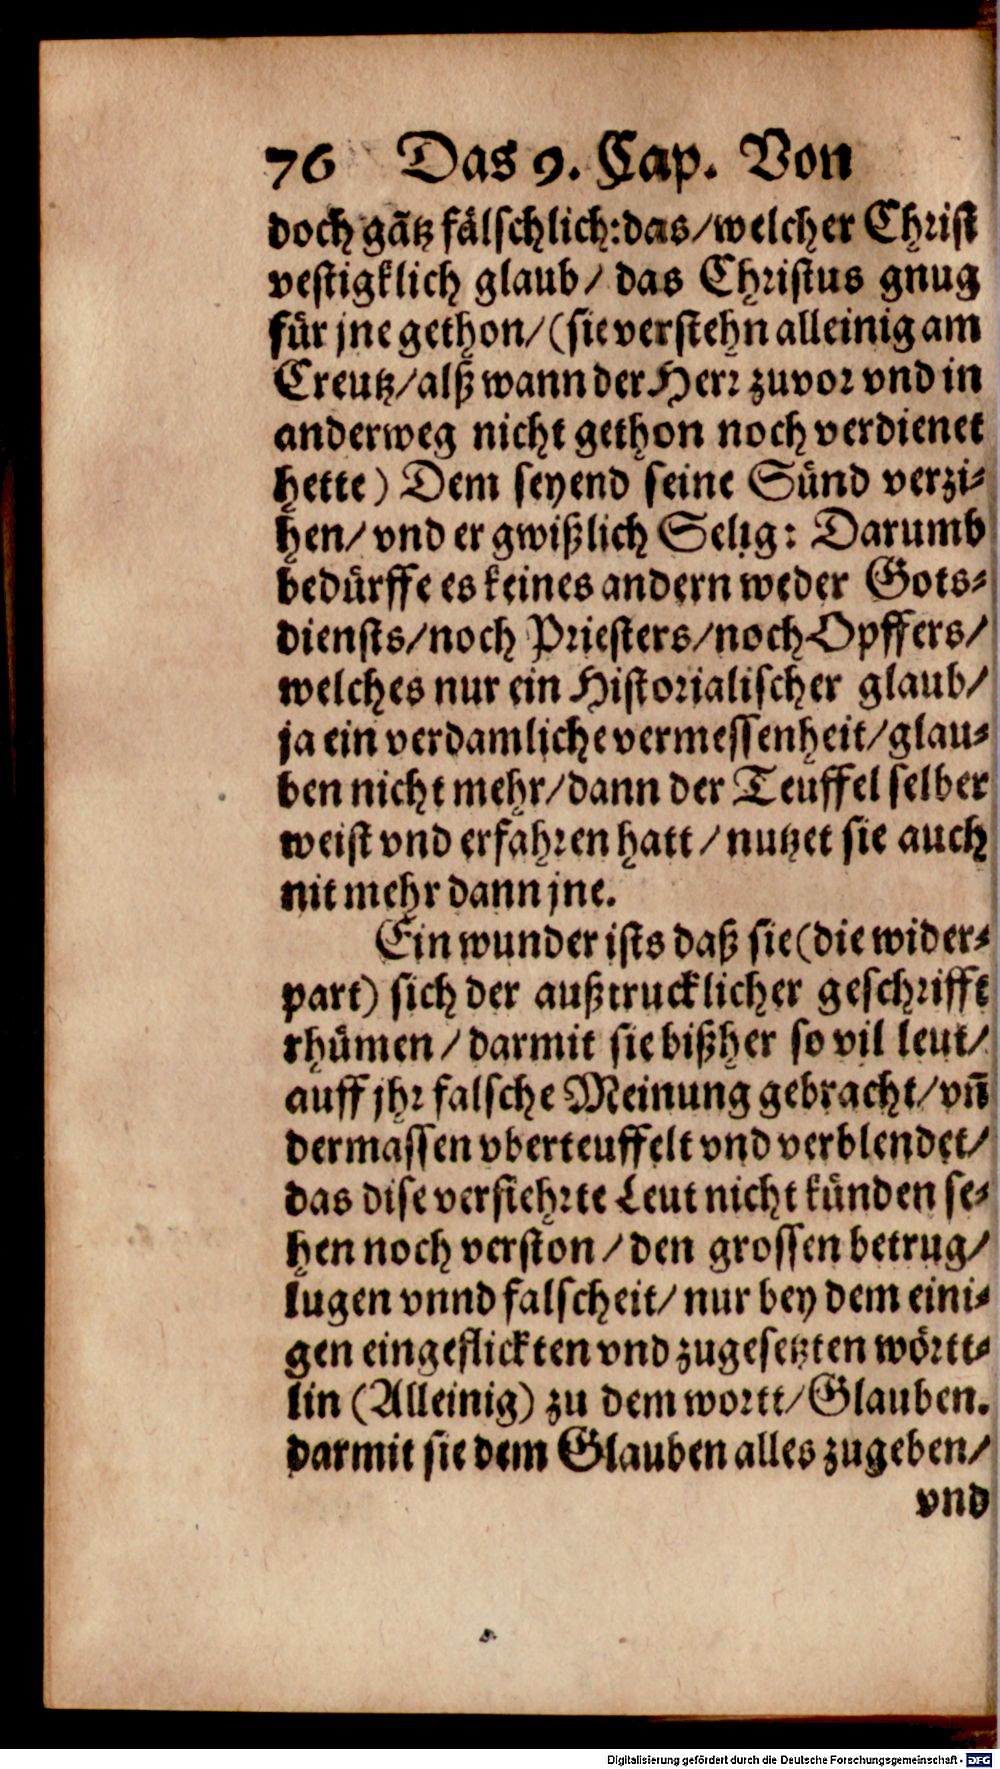 76 Das 9. Cap. Von
doch gãtz fälschlich: das/ welcher Christ
vestigklich glaub/ das Christus gnug
für jne gethon/ (sie verstehn alleinig am
Creutz/ alß wann der Herr zuvor vnd in
anderweg nicht gethon noch verdienet
hette) Dem seyend seine Sünd verzi-
hen/ vnd er gwißlich Selig: Darumb
bedürffe es keines andern weder Gots-
diensts/ noch Priesters/ noch Opffers/
welches nur ein Historialischer glaub/
ja ein verdamliche vermessenheit/ glau-
ben nicht mehr/ dann der Teuffel selber
weist vnd erfahren hatt/ nutzet sie auch
nit mehr dann jne.
Ein wunder ists daß sie (die wider-
part) sich der außtrucklicher geschrifft
rhümen/ darmit sie bißher so vil leut/
auff jhr falsche Meinung gebracht/ vñ
dermassen vberteuffelt vnd verblendet/
das dise verfiehrte Leut nicht künden se-
hen noch verston/ den grossen betrug/
lugen vnnd falscheit/ nur bey dem eini-
gen eingeflickten vnd zugesetzten wörtt-
lin (Alleinig) zu dem wortt/ Glauben.
darmit sie dem Glauben alles zugeben/
vnd
Digitalisierung gefördert durch die Deutsche Forschungsgemeinschaft - DFG